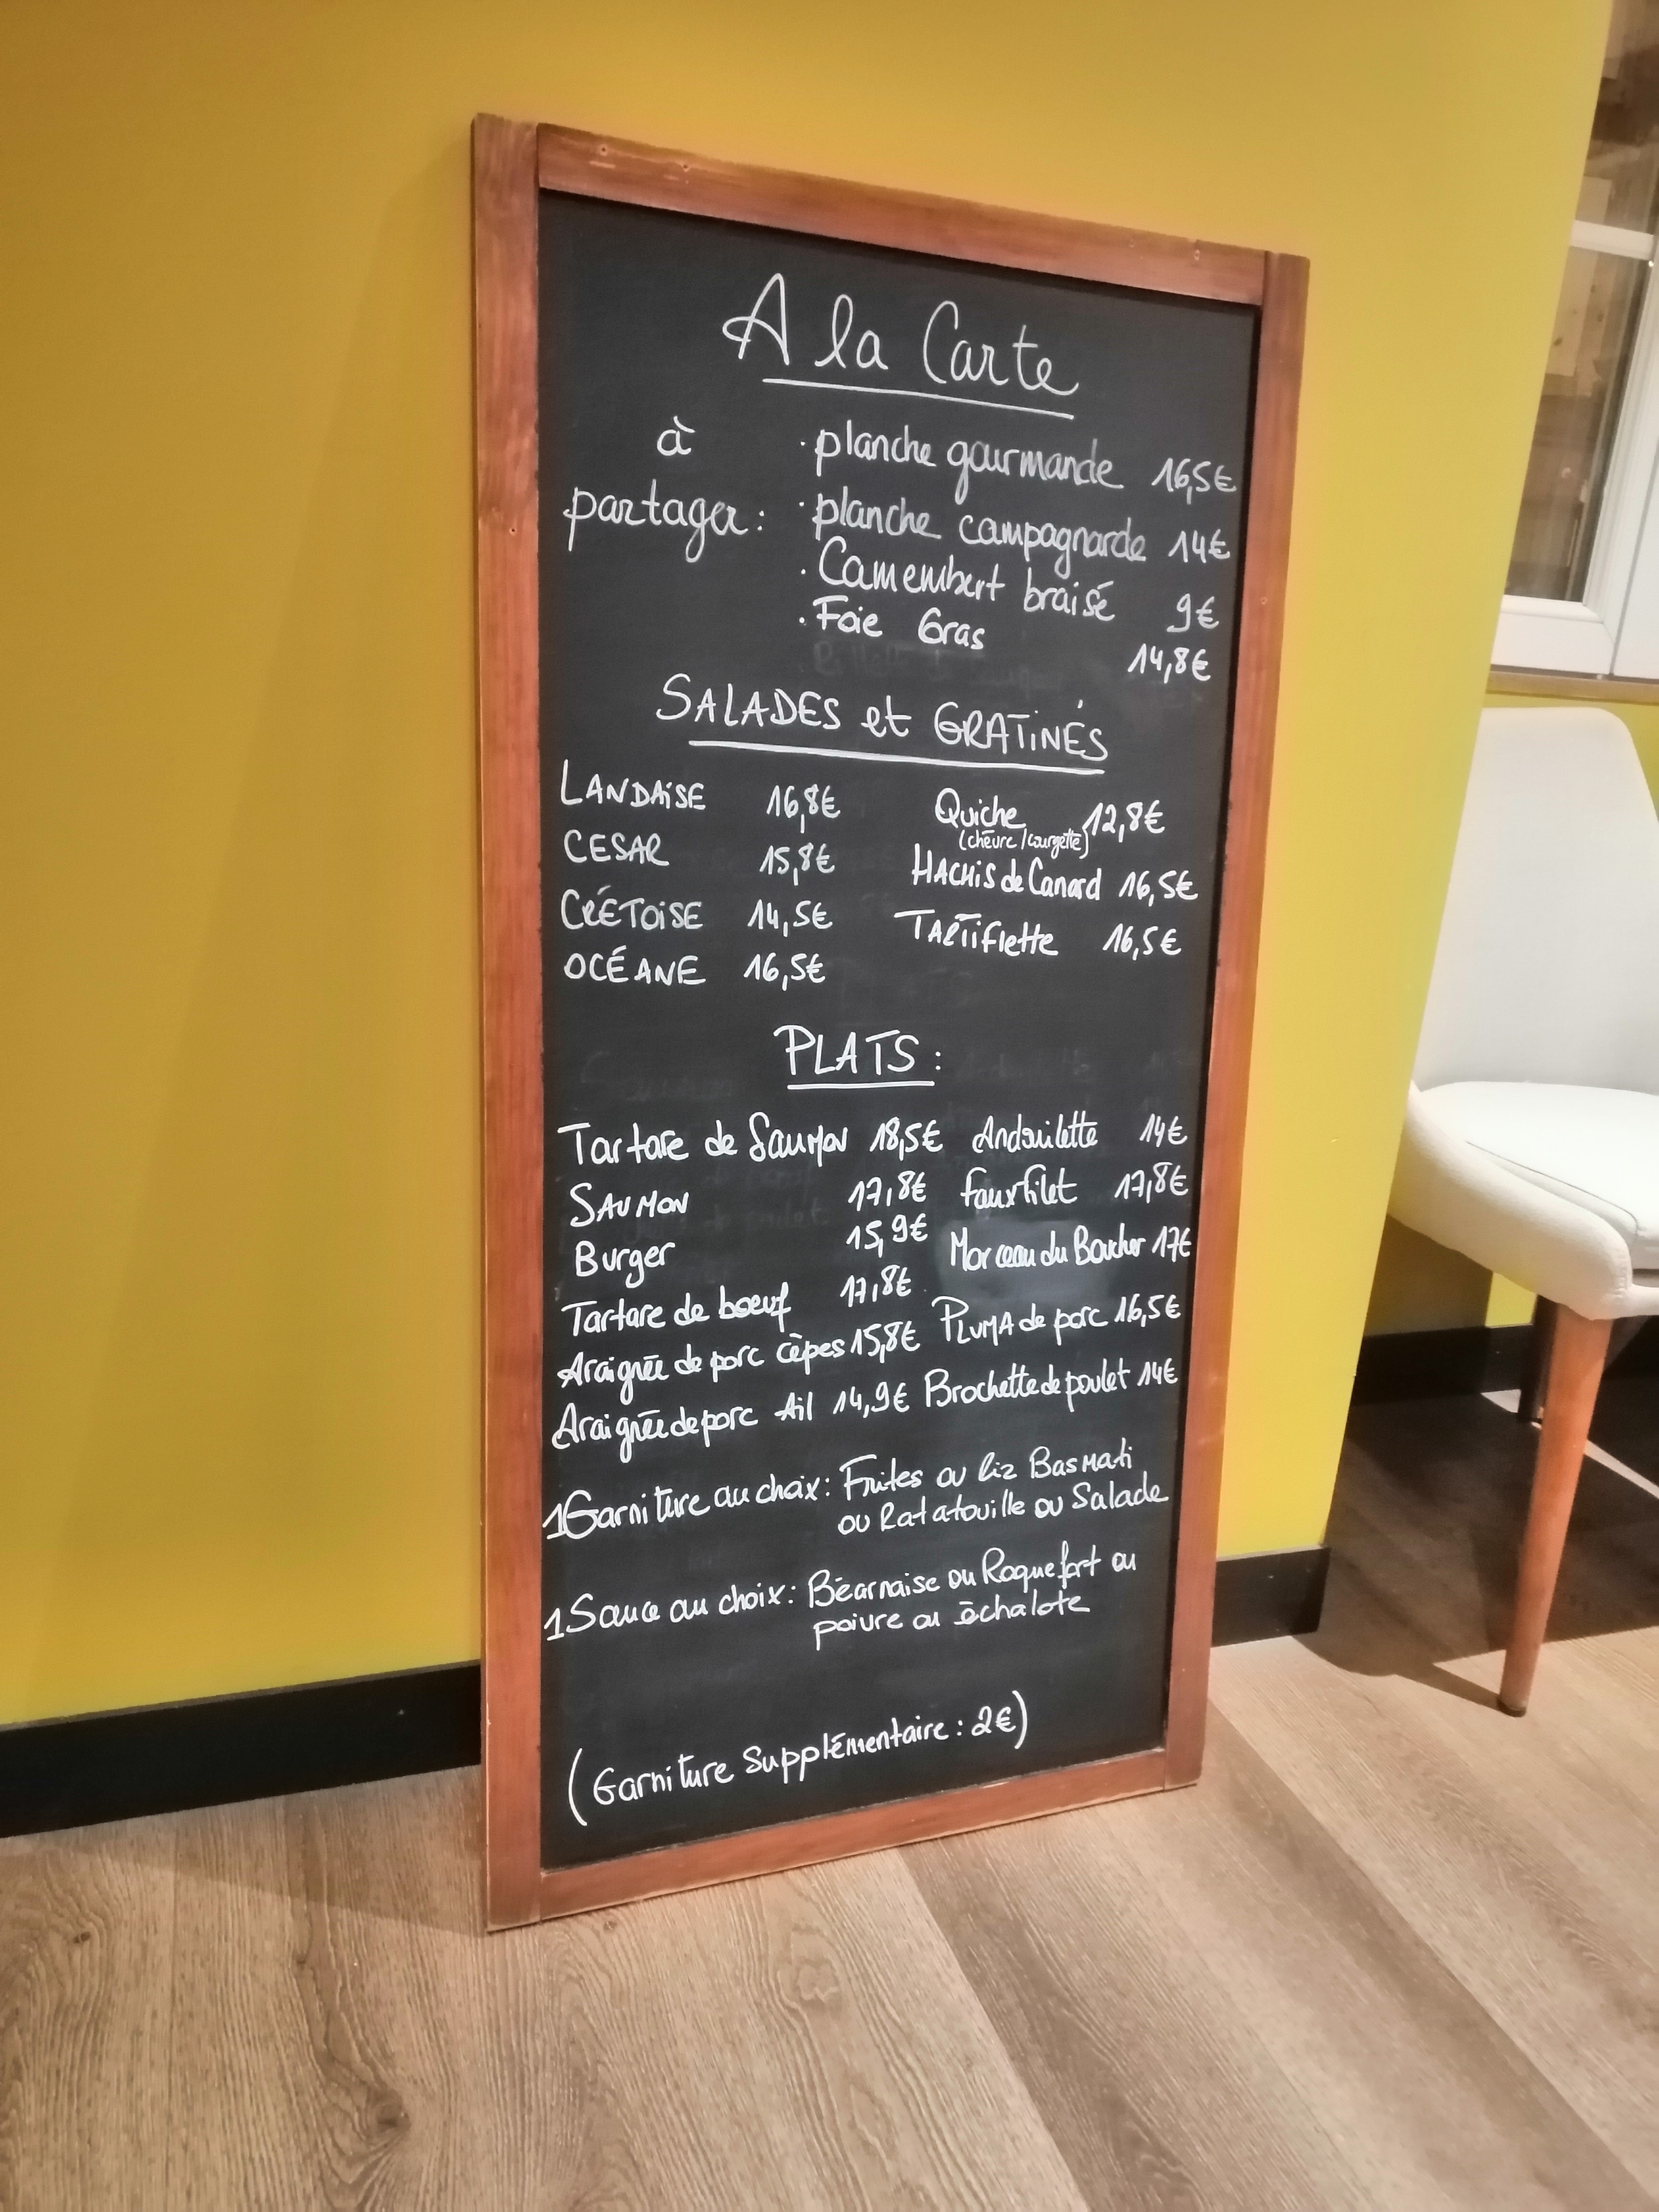 A la Carte
à
partager :
· planche gourmande 16,5€
· planche campagnarde 14€
· Camembert braisé 9€
· Foie Gras 14,8€
SALADES et GRATINÉS
LANDAISE 16,8€
CESAR 15,8€
CRÉTOISE 14,5€
OCÉANE 16,5€
Quiche 12,8€
(chèvre/courgette)
HACHIS de Canard 16,5€
TARTIFlette 16,5€
PLATS :
Tartare de Saumon 18,5€
SAUMON 17,8€
Burger 15,9€
Tartare de boeuf 17,8€
Araignée de porc cèpes 15,8€
Araignée de porc Ail 14,9€
Andouilette 14€
fauxfilet 17,8€
Morceau du Boucher 17€
PLUMA de porc 16,5€
Brochette de poulet 14€
1Garniture au choix : Frites ou Riz Basmati
ou Ratatouille ou Salade
1Sauce au choix : Béarnaise ou Roquefort ou
poivre ou échalote
(Garniture Supplémentaire : 2€)